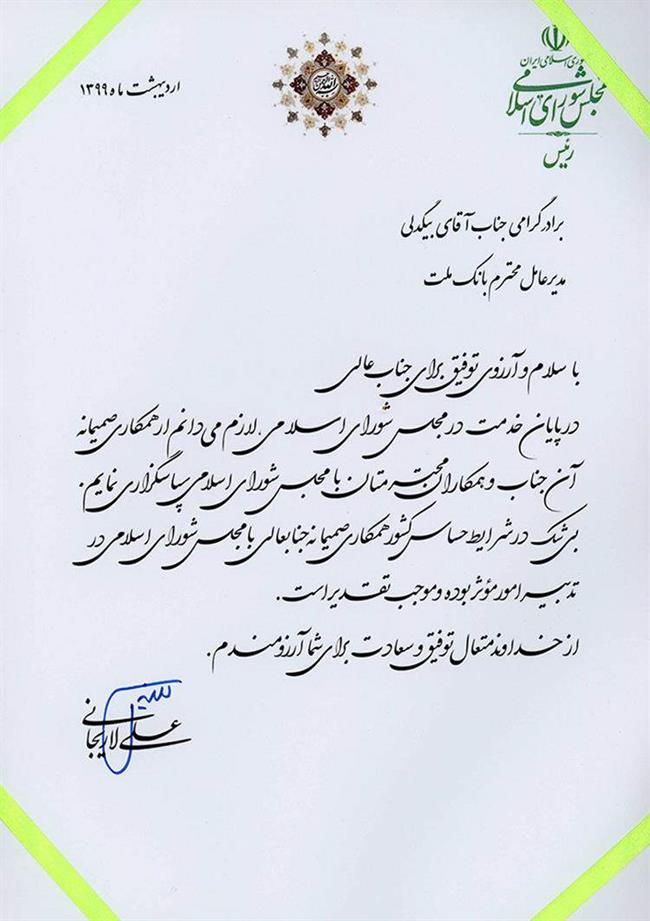 جمهوری اسلامی ایران
مجلس شورای اسلامی
رئیس
اردیبهشت ماه ۱۳۹۹
برادر گرامی جناب آقای بیگدلی
مدیرعامل محترم بانک ملت
با سلام و آرزوی توفیق برای جناب عالی
در پایان خدمت در مجلس شورای اسلامی، لازم می‌دانم از همکاری صمیمانه
آن جناب و همکاران محترمتان با مجلس شورای اسلامی سپاسگزاری نمایم.
بی‌شک در شرایط حساس کشور همکاری صمیمانه جنابعالی با مجلس شورای اسلامی در
تدبیر امور مؤثر بوده و موجب تقدیر است.
از خداوند متعال توفیق و سعادت برای شما آرزومندم.
علی لاریجانی